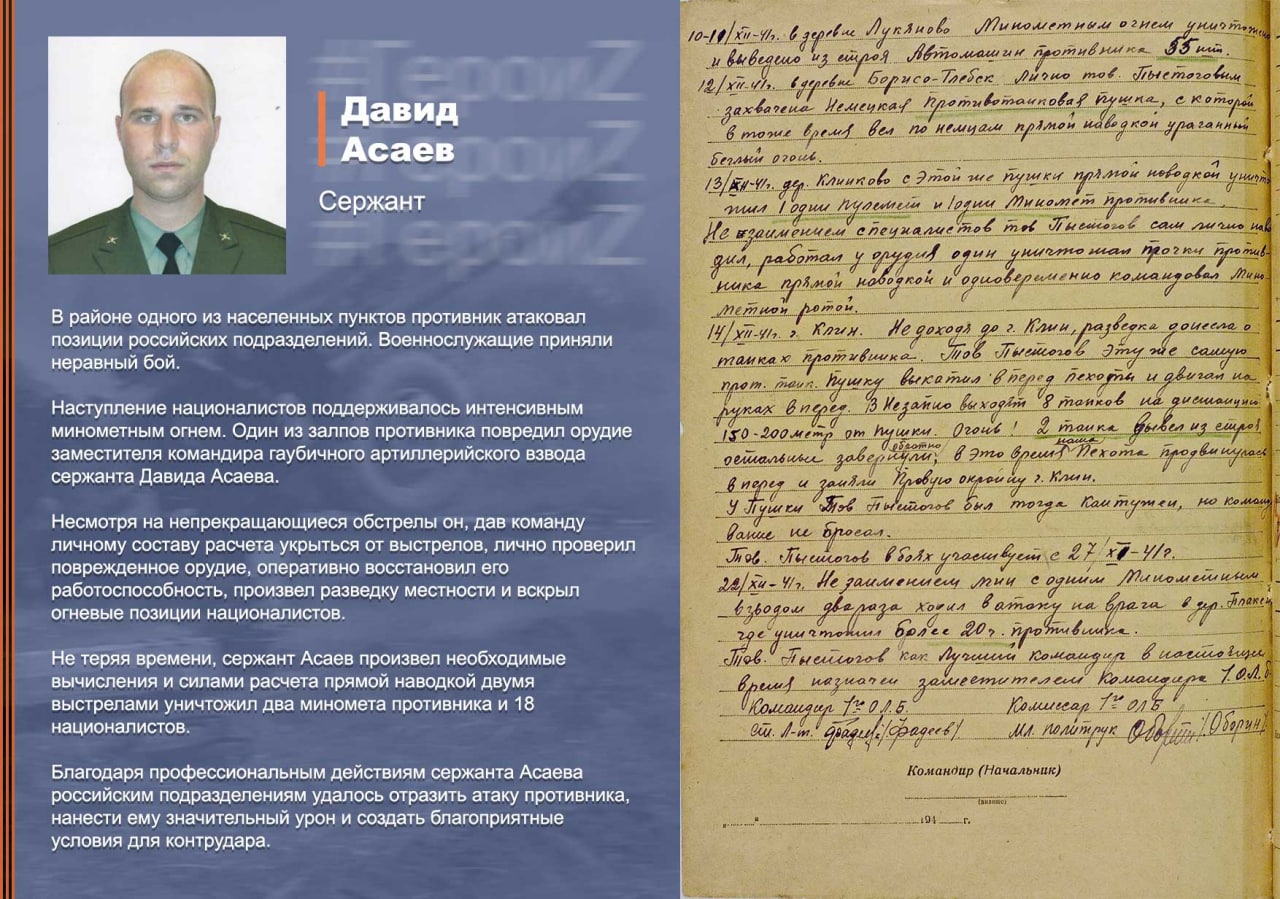 #ГероиZ
#ГероиZ
#ГероиZ
Давид
Асаев
Сержант
В районе одного из населенных пунктов противник атаковал
позиции российских подразделений. Военнослужащие приняли
неравный бой.
Наступление националистов поддерживалось интенсивным
минометным огнем. Один из залпов противника повредил орудие
заместителя командира гаубичного артиллерийского взвода
сержанта Давида Асаева.
Несмотря на непрекращающиеся обстрелы он, дав команду
личному составу расчета укрыться от выстрелов, лично проверил
поврежденное орудие, оперативно восстановил его
работоспособность, произвел разведку местности и вскрыл
огневые позиции националистов.
Не теряя времени, сержант Асаев произвел необходимые
вычисления и силами расчета прямой наводкой двумя
выстрелами уничтожил два миномета противника и 18
националистов.
Благодаря профессиональным действиям сержанта Асаева
российским подразделениям удалось отразить атаку противника,
нанести ему значительный урон и создать благоприятные
условия для контрудара.
10-11/XII-41г. в деревне Лукяново Минометным огнем уничтожено
и выведено из строя Автомашин противника 55 шт.
12/XII-41г. в деревне Борисо-Глебск Лично тов. Пыстоговым
захвачена Немецкая Противотанковая Пушка, с которой
в тоже время вел по немцам прямой наводкой ураганный
беглый огонь.
13/XII-41г. дер. Клинково с Этой же пушки прямой наводкой уничто
жил 1 один Пулемет и 1 один Миномет противника.
Не заимением специалистов тов Пыстогов сам лично наво
дил, работал у орудия один уничтожал точки против-
ника прямой наводкой и одновременно командовал Мино-
метной ротой.
14/XII-41г. г. Клин. Не доходя до г. Клин, разведка донесла о
танках противника. Тов Пыстогов Эту же самую
прот. танк. Пушку выкатил вперед пехоты и двигал на
руках вперед. В Незапно выходят 8 танков на дистанцию
150-200 метр от Пушки. Огонь! 2 танка вывел из строя
остальные завернули обратно, в Это время наша Пехота продвинулась
вперед и заняли Правую окройну г. Клин.
У Пушки Тов Пыстогов был тогда Кантужен, но командо
вание не бросал.
Тов. Пыстогов в боях участвует с 27/XI-41г.
22/XII-41г. Не заимением мин с одним Минометным
взводом двараза ходил в атаку на врага в дер.
где уничтожил более 20 ч. противника.
Тов. Пыстогов как Лучший командир в настоящее
время назначен заместителем Командира 1.О.Л.Б
Командир 1го О.Л.Б. Комиссар 1го ОЛБ
Ст. Л-т. Фадеев /Фадеев/ Мл. политрук /Оборин/
Командир (Начальник)
(звание)
" " 194 г.